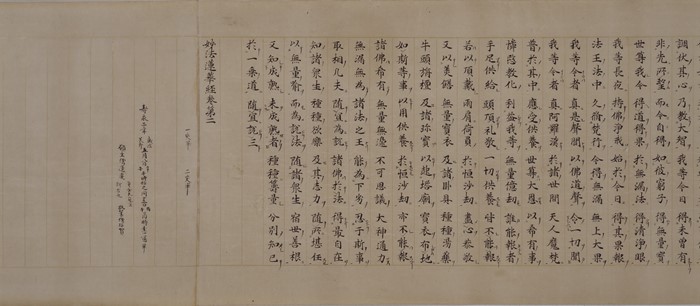 調伏其心 乃教大智 我等今日 得未曾有
非先所望 而今自得 如彼窮子 得無量寶
世尊我今 得道得果 於無漏法 得清淨眼
我等長夜 持佛淨戒 始於今日 得其果報
法王法中 久脩梵行 今得無漏 無上大果
我等今者 真是聲聞 以佛道聲 令一切聞
我等今者 真阿羅漢 於諸世間 天人魔梵
普於其中 應受供養 世尊大恩 以希有事
憐愍教化 利益我等 無量億劫 誰能報者
手足供給 頭頂禮敬 一切供養 皆不能報
若以頂戴 兩肩荷負 於恒沙劫 盡心恭敬
又以美饍 無量寶衣 及諸臥具 種種湯藥
牛頭旃檀 及諸珍寶 以起塔廟 寶衣布地
如斯等事 以用供養 於恒沙劫 亦不能報
諸佛希有 無量無邊 不可思議 大神通力
無漏無為 諸法之王 能為下劣 忍于斯事
取相凡夫 隨宜為說 諸佛於法 得最自在
知諸眾生 種種欲樂 及其志力 隨所堪任
以無量喻 而為說法 隨諸眾生 宿世善根
又知成熟 未成熟者 種種籌量 分別知已
於一乘道 隨宜說三
妙法蓮華經卷第二